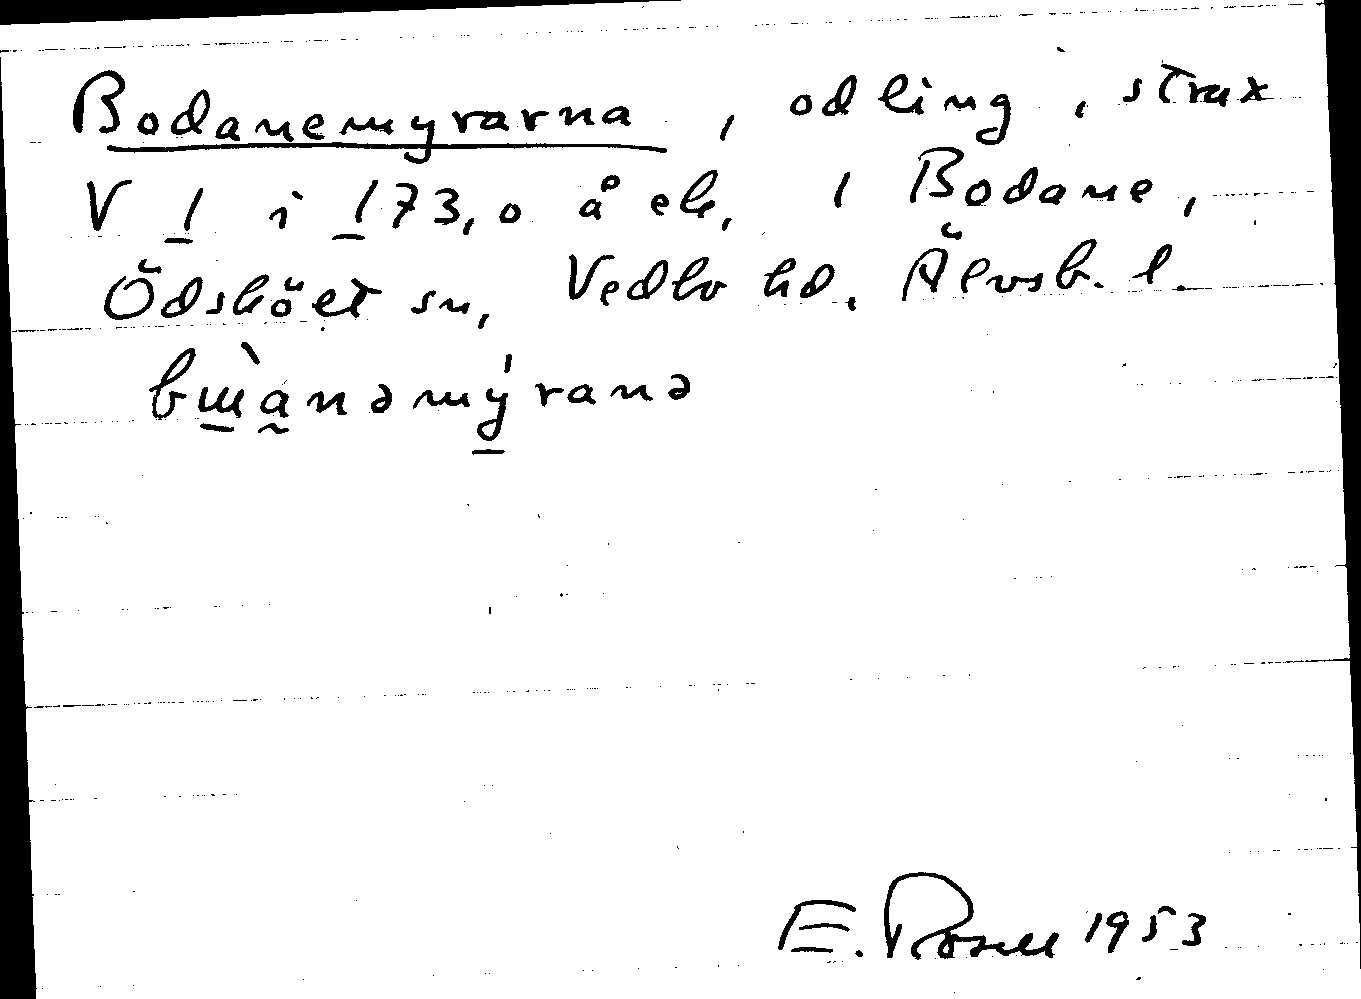 Bodanemyrarna, odling, strax
V 1 i 173,0 å ek. 1 Bodane,
Ödsköet sn, Vedbo hd. Älvsb. l.
E. Rosell 1953